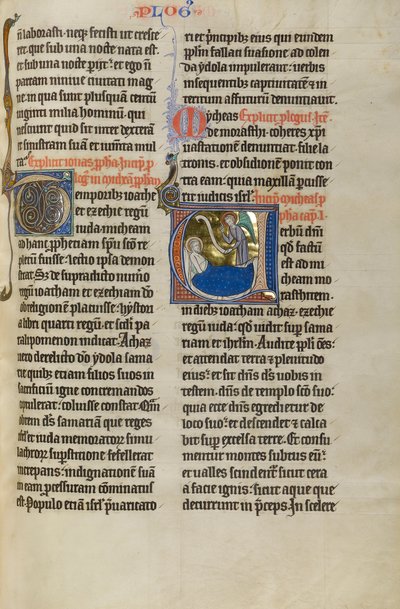 PLOG᷒
n̄ laborasti. neq; fecisti ut cresce
ret. que sub una nocte nata est.
et sub una nocte perijt: et ego n̄
parcam ninive ciuitati mag
ne. in qua sunt plusquam centū
uiginti milia hominum. qui
nesciunt quid sit inter dexterā
et sinistram suā et iumēta mul
ta. Explicit ionas ꝓpha. Incip̄ ꝓ
logꝰ in micheam ꝓphetā
Temporibꝰ ioathe
et ezechie regū
iuda. micheam
ad hanc ꝓphetiam sp̄m sc̄m re
pleuisse. lectio ipsa demon
strat. Sꝫ de supradicto numꝰo
regū ioatham et ezechiam dō
ob religionē placuisse. hystori
a libri quarti regū. et scͥbti pa
ralipomenon indicat. Achaz
uero derelicto dō ydola sama
rie quibꝫ etiam filios suos in
sacrificiū igne concremandos
optulerat. coluisse constat. Qm̄
ob rem dn̄s samariā que reges
isrl̓ et iuda memoratos simu
lachrorꝫ superstitione fefellerat
increpans: indignationē suā
in eam ꝓcessuram cōminatus
est. Populo etiā isrl̓ p̄uaricato
ri. et p̄ncipibꝫ eius qui eundem
ppl̄m fallaci suasione ad colen
da ydola impulerant. uerbis
in sequentibꝫ captiuitatē et in
teritum affuturū denuntiauit.
Mycheas Explicit ꝓlogus. Itē.
de morasthi. coheres xp̄i
uastationē denuntiat. filie la
tronis. et obsidionē ponit con
tra eam: quia maxillā ꝑcusse
rit iudicis isrl̓. Incip̄ micheas ꝓ
pha. cap. I.
Verbū dn̄i
qd̓ factū
est ad mi
cheam mo
rasthitem.
in diebꝫ ioatham achaz. ezechie
regū iuda: qd̓ uidit sup̄ sama
riam et ihrl̄m. Audite ppl̄i ōēs:
et attendat terra et plenitudo
eius: et sit dn̄s ds̄ uobis in
testem. dn̄s de templo scō suo:
quia ecce dn̄s egredietur de
loco suo: et descendet et calca
bit sup̄ excelsa terre. Et consu
mentur montes subtus eū:
et ualles scindent᷑ sicut cera
a facie ignis: sicut aque que
decurrunt in p̄ceps. In scelere